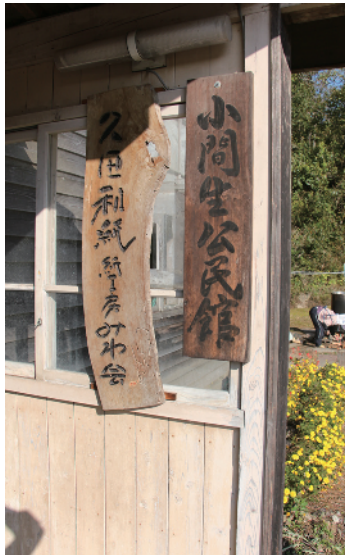 小間生公民館
久田和紙 紙工房みわ会